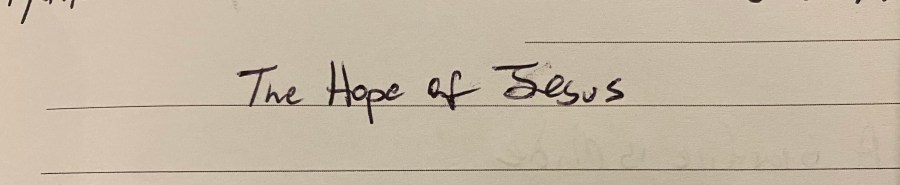 The Hope of Jesus